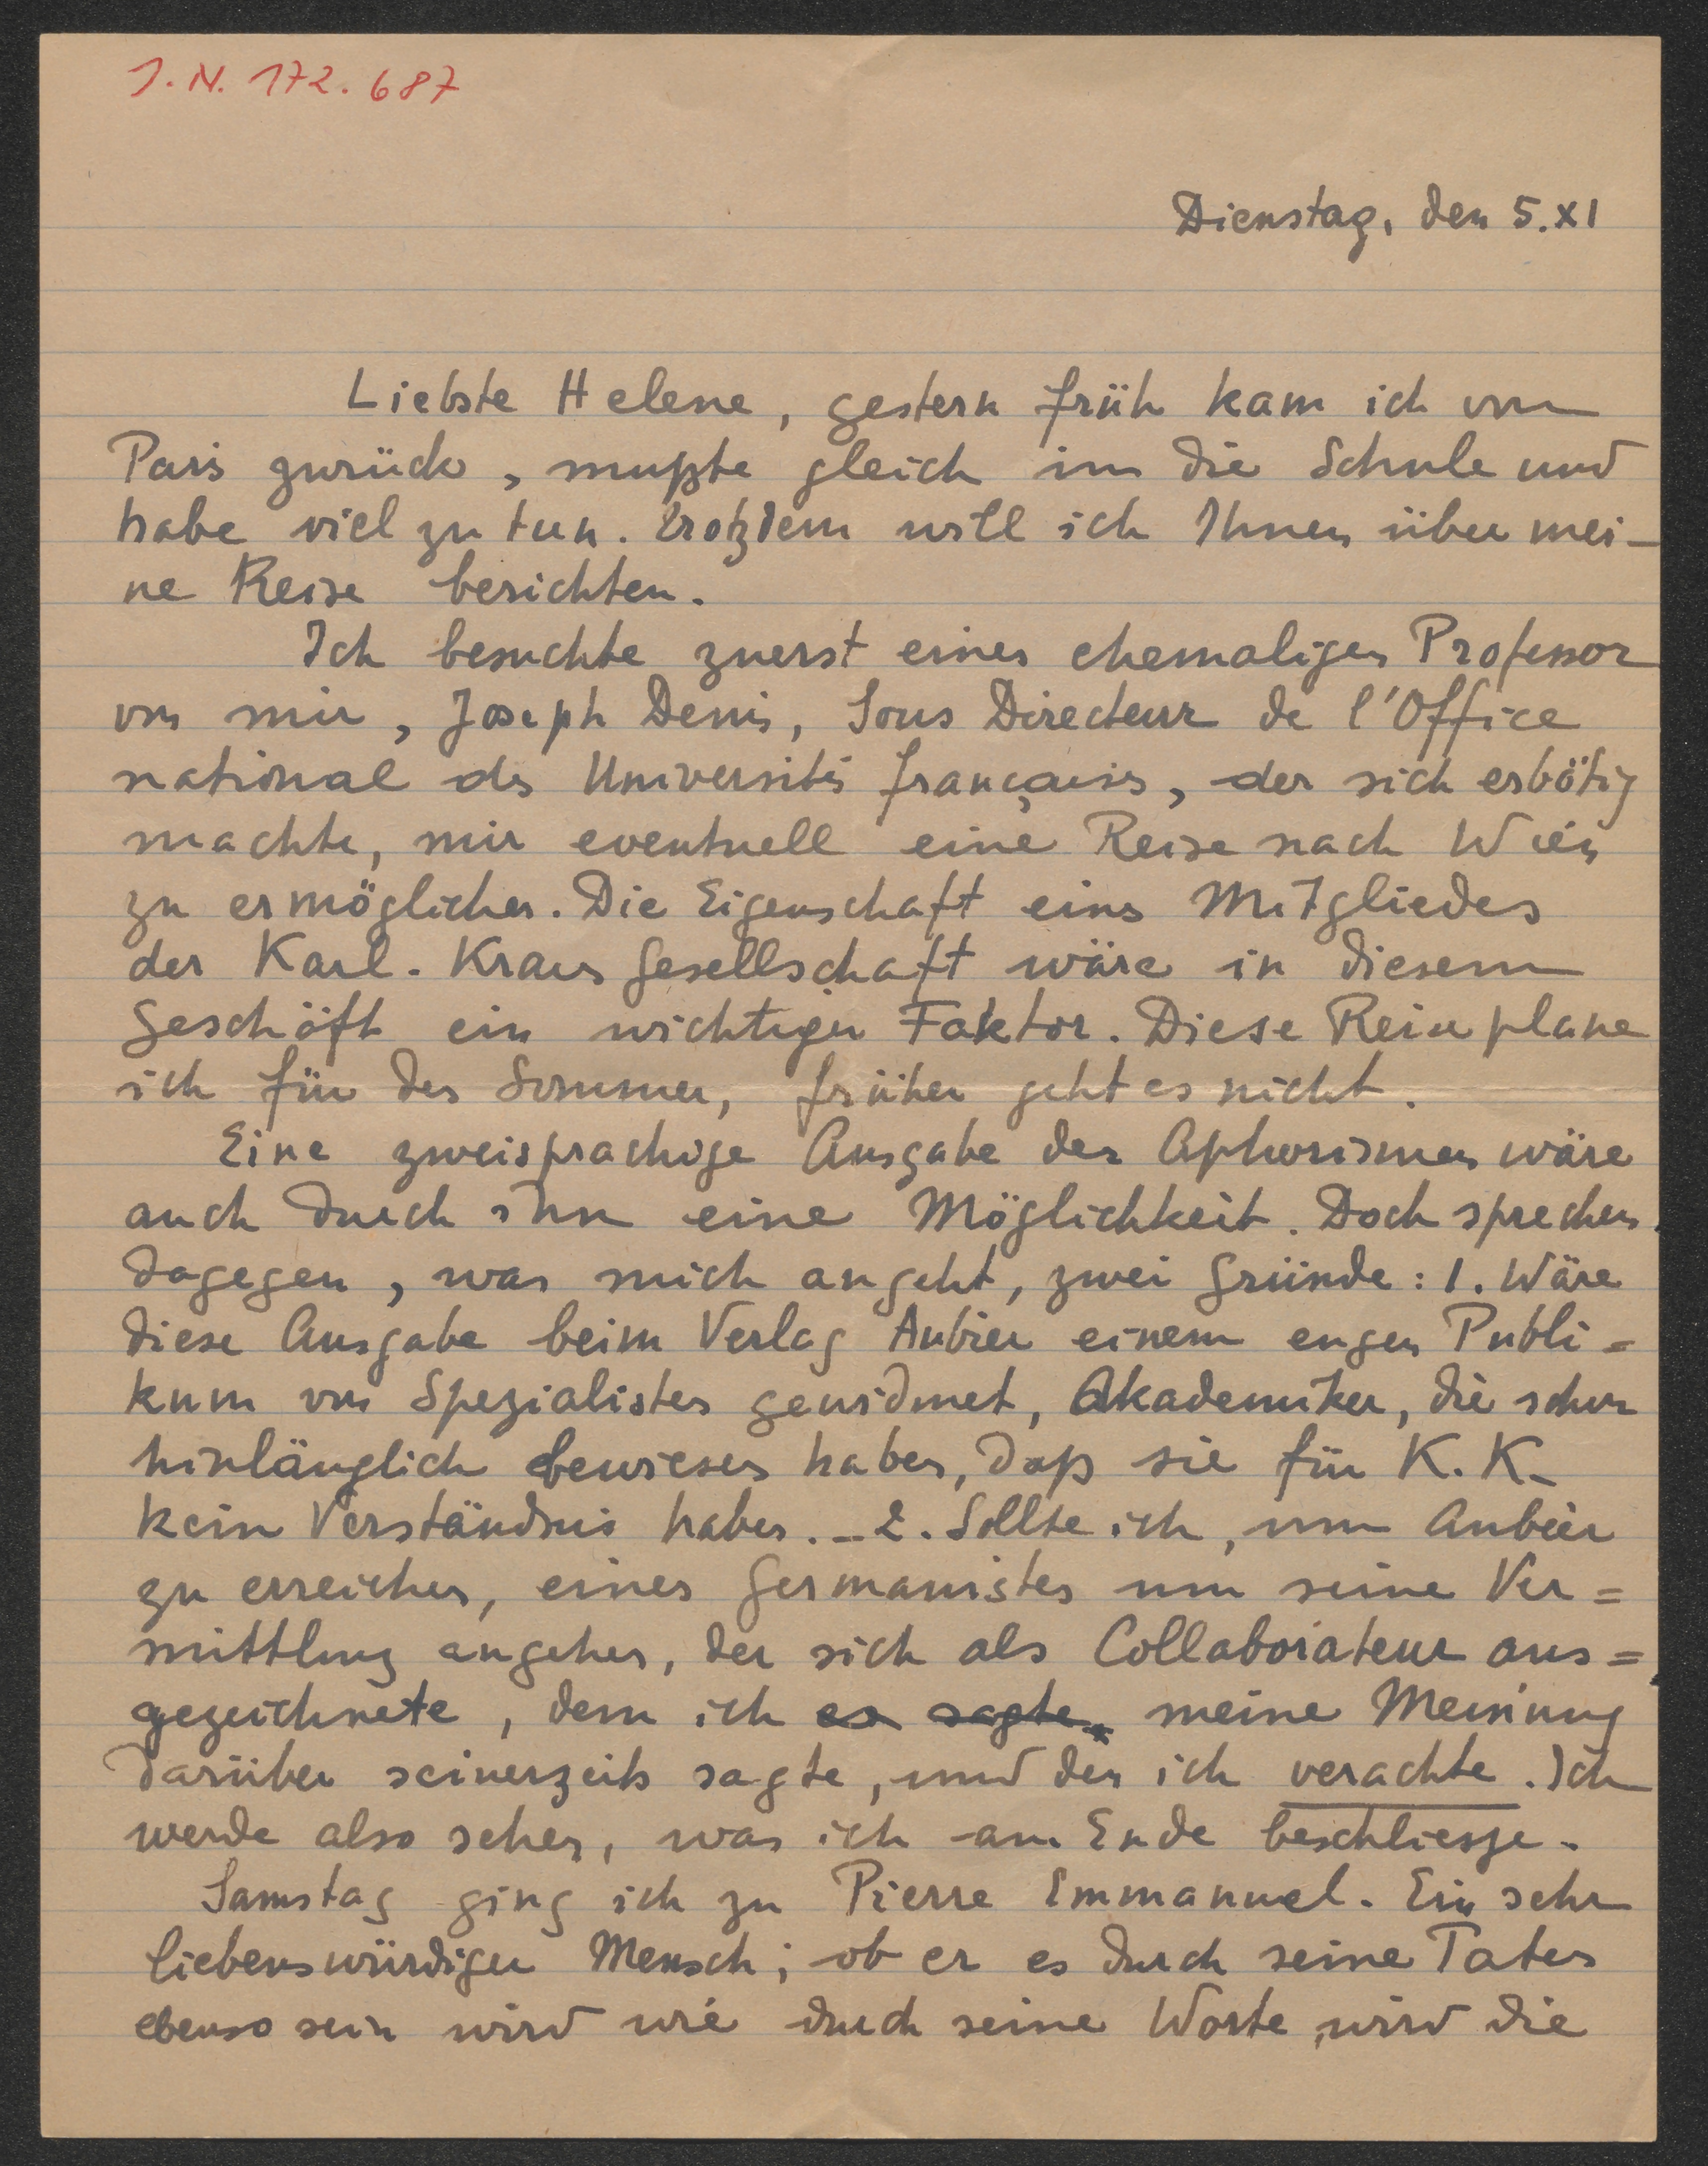 J.N. 172.687
Dienstag, den 5.XI
Liebste Helene, gestern früh kam ich von
Paris zurück, mußte gleich in die Schule und
habe viel zu tun. Trotzdem will ich Ihnen über mei-
ne Reise berichten.
Ich besuchte zuerst einen ehemaligen Professor
von mir, Joseph Denis, Sous Directeur de l'Office
national des Universités françaises, der sich erbötig
machte, mir eventuell eine Reise nach Wien
zu ermöglichen. Die Eigenschaft eines Mitgliedes
der Karl-Kraus Gesellschaft wäre in diesem
Geschäft ein wichtiger Faktor. Diese Reise plane
ich für den Sommer, früher geht es nicht.
Eine zweisprachige Ausgabe der Aphorismen wäre
auch durch ihn eine Möglichkeit. Doch sprechen
dagegen, was mich angeht, zwei Gründe: 1. Wäre
diese Ausgabe beim Verlag Aubier einem engen Publi=
kum von Spezialisten gewidmet, Akademiker, die schon
hinlänglich bewiesen haben, daß sie für K.K.
kein Verständnis haben. - 2. Sollte ich, um Aubier
zu erreichen, einen Germanisten um seine Ver=
mittlung angehen, der sich als Collaborateur aus=
gezeichnete, dem ich es sagte meine Meinung
darüber seinerzeits sagte, und den ich verachte. Ich
werde also sehen, was ich am Ende beschliesse.
Samstag ging ich zu Pierre Emmanuel. Ein sehr
liebenswürdiger Mensch; ob er es durch seine Taten
ebenso sein wird wie durch seine Worte, wird die